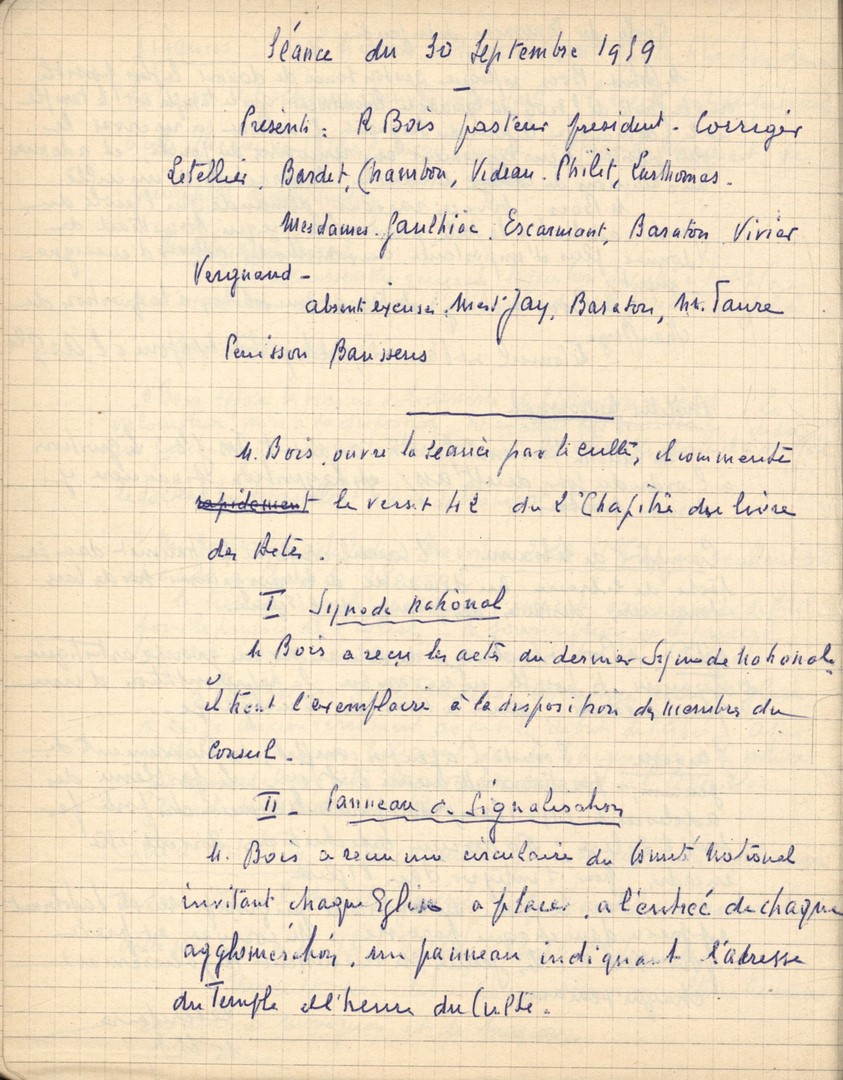 Séance du 30 Septembre 1959
Présents : R Bois pasteur président - Corriger
Letellier, Bardet, Chambon, Videau. Philit, Lusthomas.
Mesdames. Gaulhiac. Escarmant, Baraton Vivier
Vergnaud -
absents excusés Baraton, Faure
Penisson Baussens
M. Bois, ouvre la séance par le culte, il commente
rapidement le verset 42 du 2e Chapitre du livre
des Actes.
I Synode National
M Bois a reçu les actes du dernier Synode National.
il tient l'exemplaire à la disposition des membres du
Conseil.
II - Panneau de Signalisation
M. Bois a reçu une circulaire du Comité National
invitant chaque Eglise a placer, a l'entrée de chaque
agglomération, un panneau indiquant l'adresse
du Temple et l'heure du Culte.